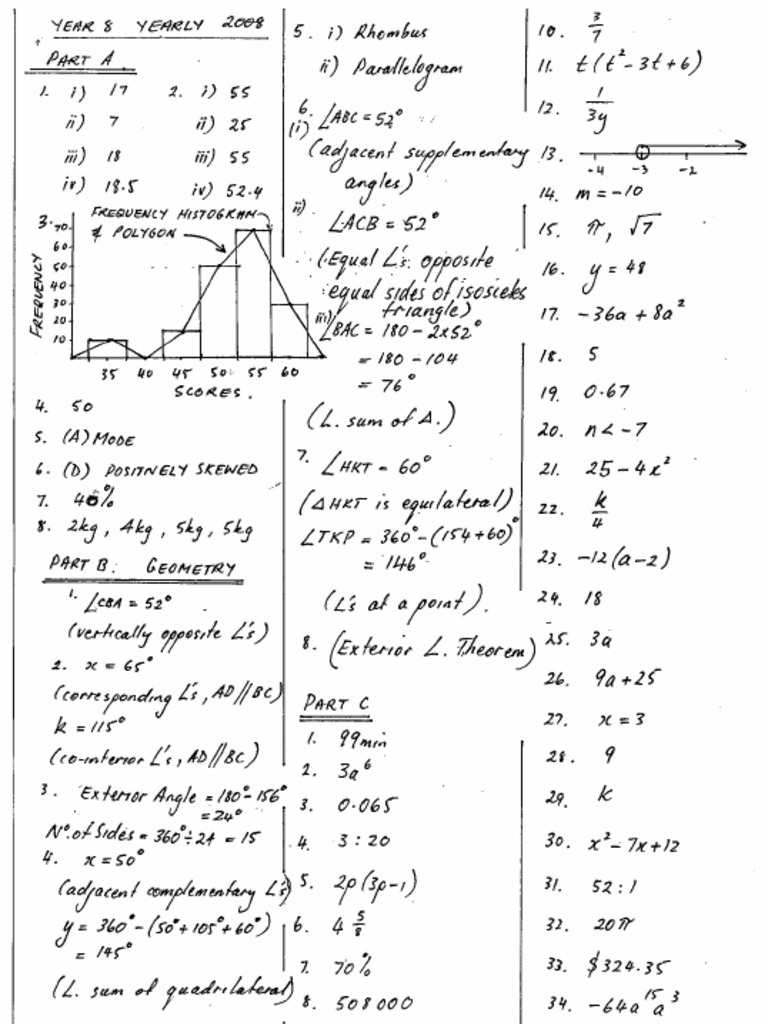 YEAR 8 YEARLY 2008
PART A
1. i) 17
ii) 7
iii) 18
iv) 18.5
2. i) 55
ii) 25
iii) 55
iv) 52.4
3.
FREQUENCY HISTOGRAM
& POLYGON
FREQUENCY
70
60
50
40
30
20
10
35 40 45 50 55 60
SCORES.
4. 50
5. (A) MODE
6. (D) POSITIVELY SKEWED
7. 40%
8. 2kg, 4kg, 5kg, 5kg
PART B: GEOMETRY
1. ∠CBA = 52°
(vertically opposite ∠'s)
2. x = 65°
(corresponding ∠'s, AD//BC)
k = 115°
(co-interior ∠'s, AD//BC)
3. Exterior Angle = 180° - 156°
= 24°
Nº. of Sides = 360° ÷ 24 = 15
4. x = 50°
(adjacent complementary ∠'s)
y = 360° - (50° + 105° + 60°)
= 145°
(∠. sum of quadrilateral)
5. i) Rhombus
ii) Parallelogram
6.
(i) ∠ABC = 52°
(adjacent supplementary
angles)
ii) ∠ACB = 52°
(Equal ∠'s. opposite
equal sides of isosceles
triangle)
iii) ∠BAC = 180 - 2x52°
= 180 - 104
= 76°
(∠. sum of Δ.)
7. ∠HKT = 60°
(ΔHKT is equilateral)
∠TKP = 360° - (154 + 60)°
= 146°
(∠'s at a point).
8. (Exterior ∠. Theorem)
PART C
1. 99min
2. 3a⁶
3. 0.065
4. 3 : 20
5. 2p(3p-1)
6. 4 5/8
7. 70%
8. 508000
10. 3/7
11. t(t² - 3t + 6)
12. 1/3y
13. -4 -3 -2
14. m = -10
15. π, √7
16. y = 48
17. -36a + 8a²
18. 5
19. 0.67
20. n < -7
21. 25 - 4x²
22. k/4
23. -12(a-2)
24. 18
25. 3a
26. 9a + 25
27. x = 3
28. 9
29. K
30. x² - 7x + 12
31. 52 : 1
32. 20π
33. $324.35
34. -64a¹⁵a³